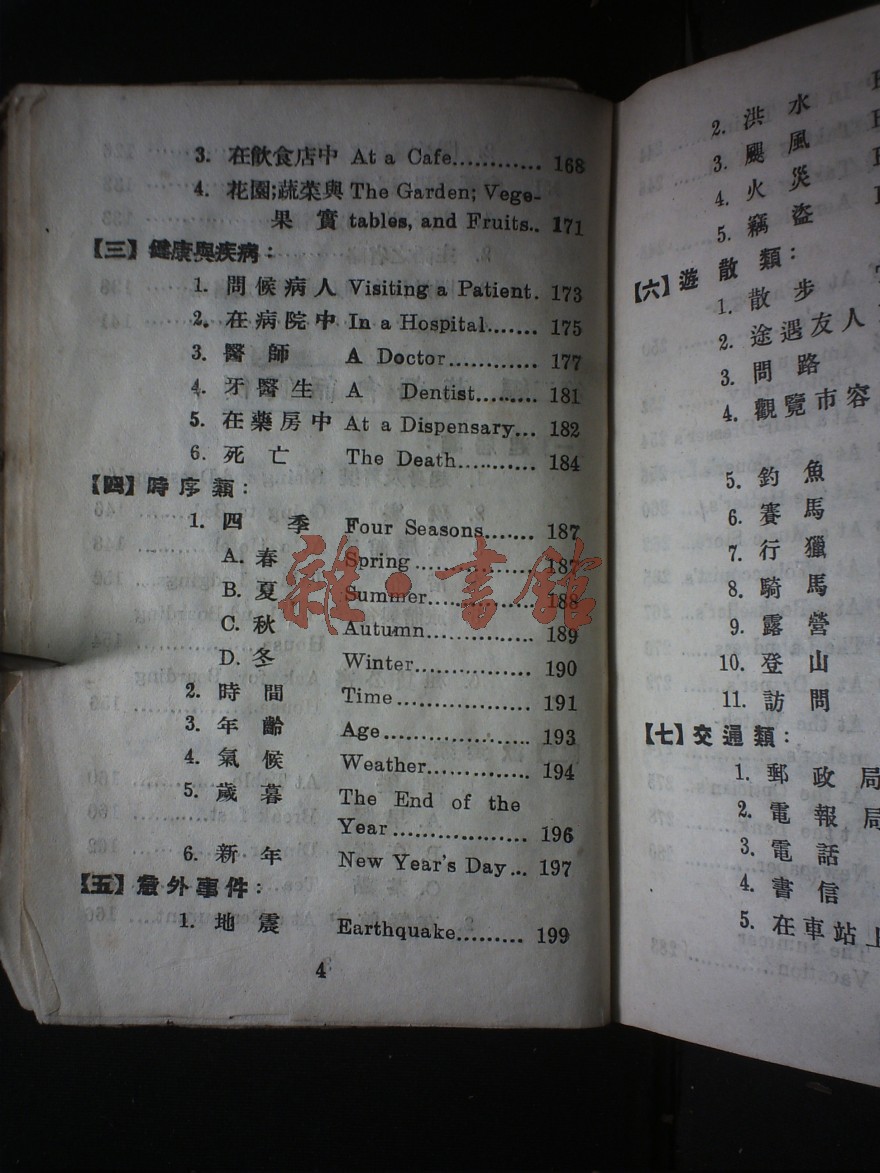 3. 在飲食店中 At a Cafe............ 168
4. 花園;蔬菜與 The Garden; Vege-
果 實 tables, and Fruits.. 171
【三】健康與疾病：
1. 問候病人 Visiting a Patient. 173
2. 在病院中 In a Hospital....... 175
3. 醫 師 A Doctor............ 177
4. 牙醫生 A Dentist......... 181
5. 在藥房中 At a Dispensary... 182
6. 死 亡 The Death........... 184
【四】時序類：
1. 四 季 Four Seasons....... 187
A. 春 Spring ............... 187
B. 夏 Summer............. 188
C. 秋 Autumn............. 189
D. 冬 Winter............... 190
2. 時間 Time .................. 191
3. 年齡 Age.................... 193
4. 氣候 Weather............. 194
5. 歲暮 The End of the
Year ................. 196
6. 新年 New Year's Day... 197
【五】意外事件：
1. 地震 Earthquake......... 199
4
雜·書館
2. 洪水
3. 颶風
4. 火災
5. 竊盜
【六】遊散類：
1. 散步
2. 途遇友人
3. 問路
4. 觀覽市容
5. 釣魚
6. 賽馬
7. 行獵
8. 騎馬
9. 露營
10. 登山
11. 訪問
【七】交通類：
1. 郵政局
2. 電報局
3. 電話
4. 書信
5. 在車站上